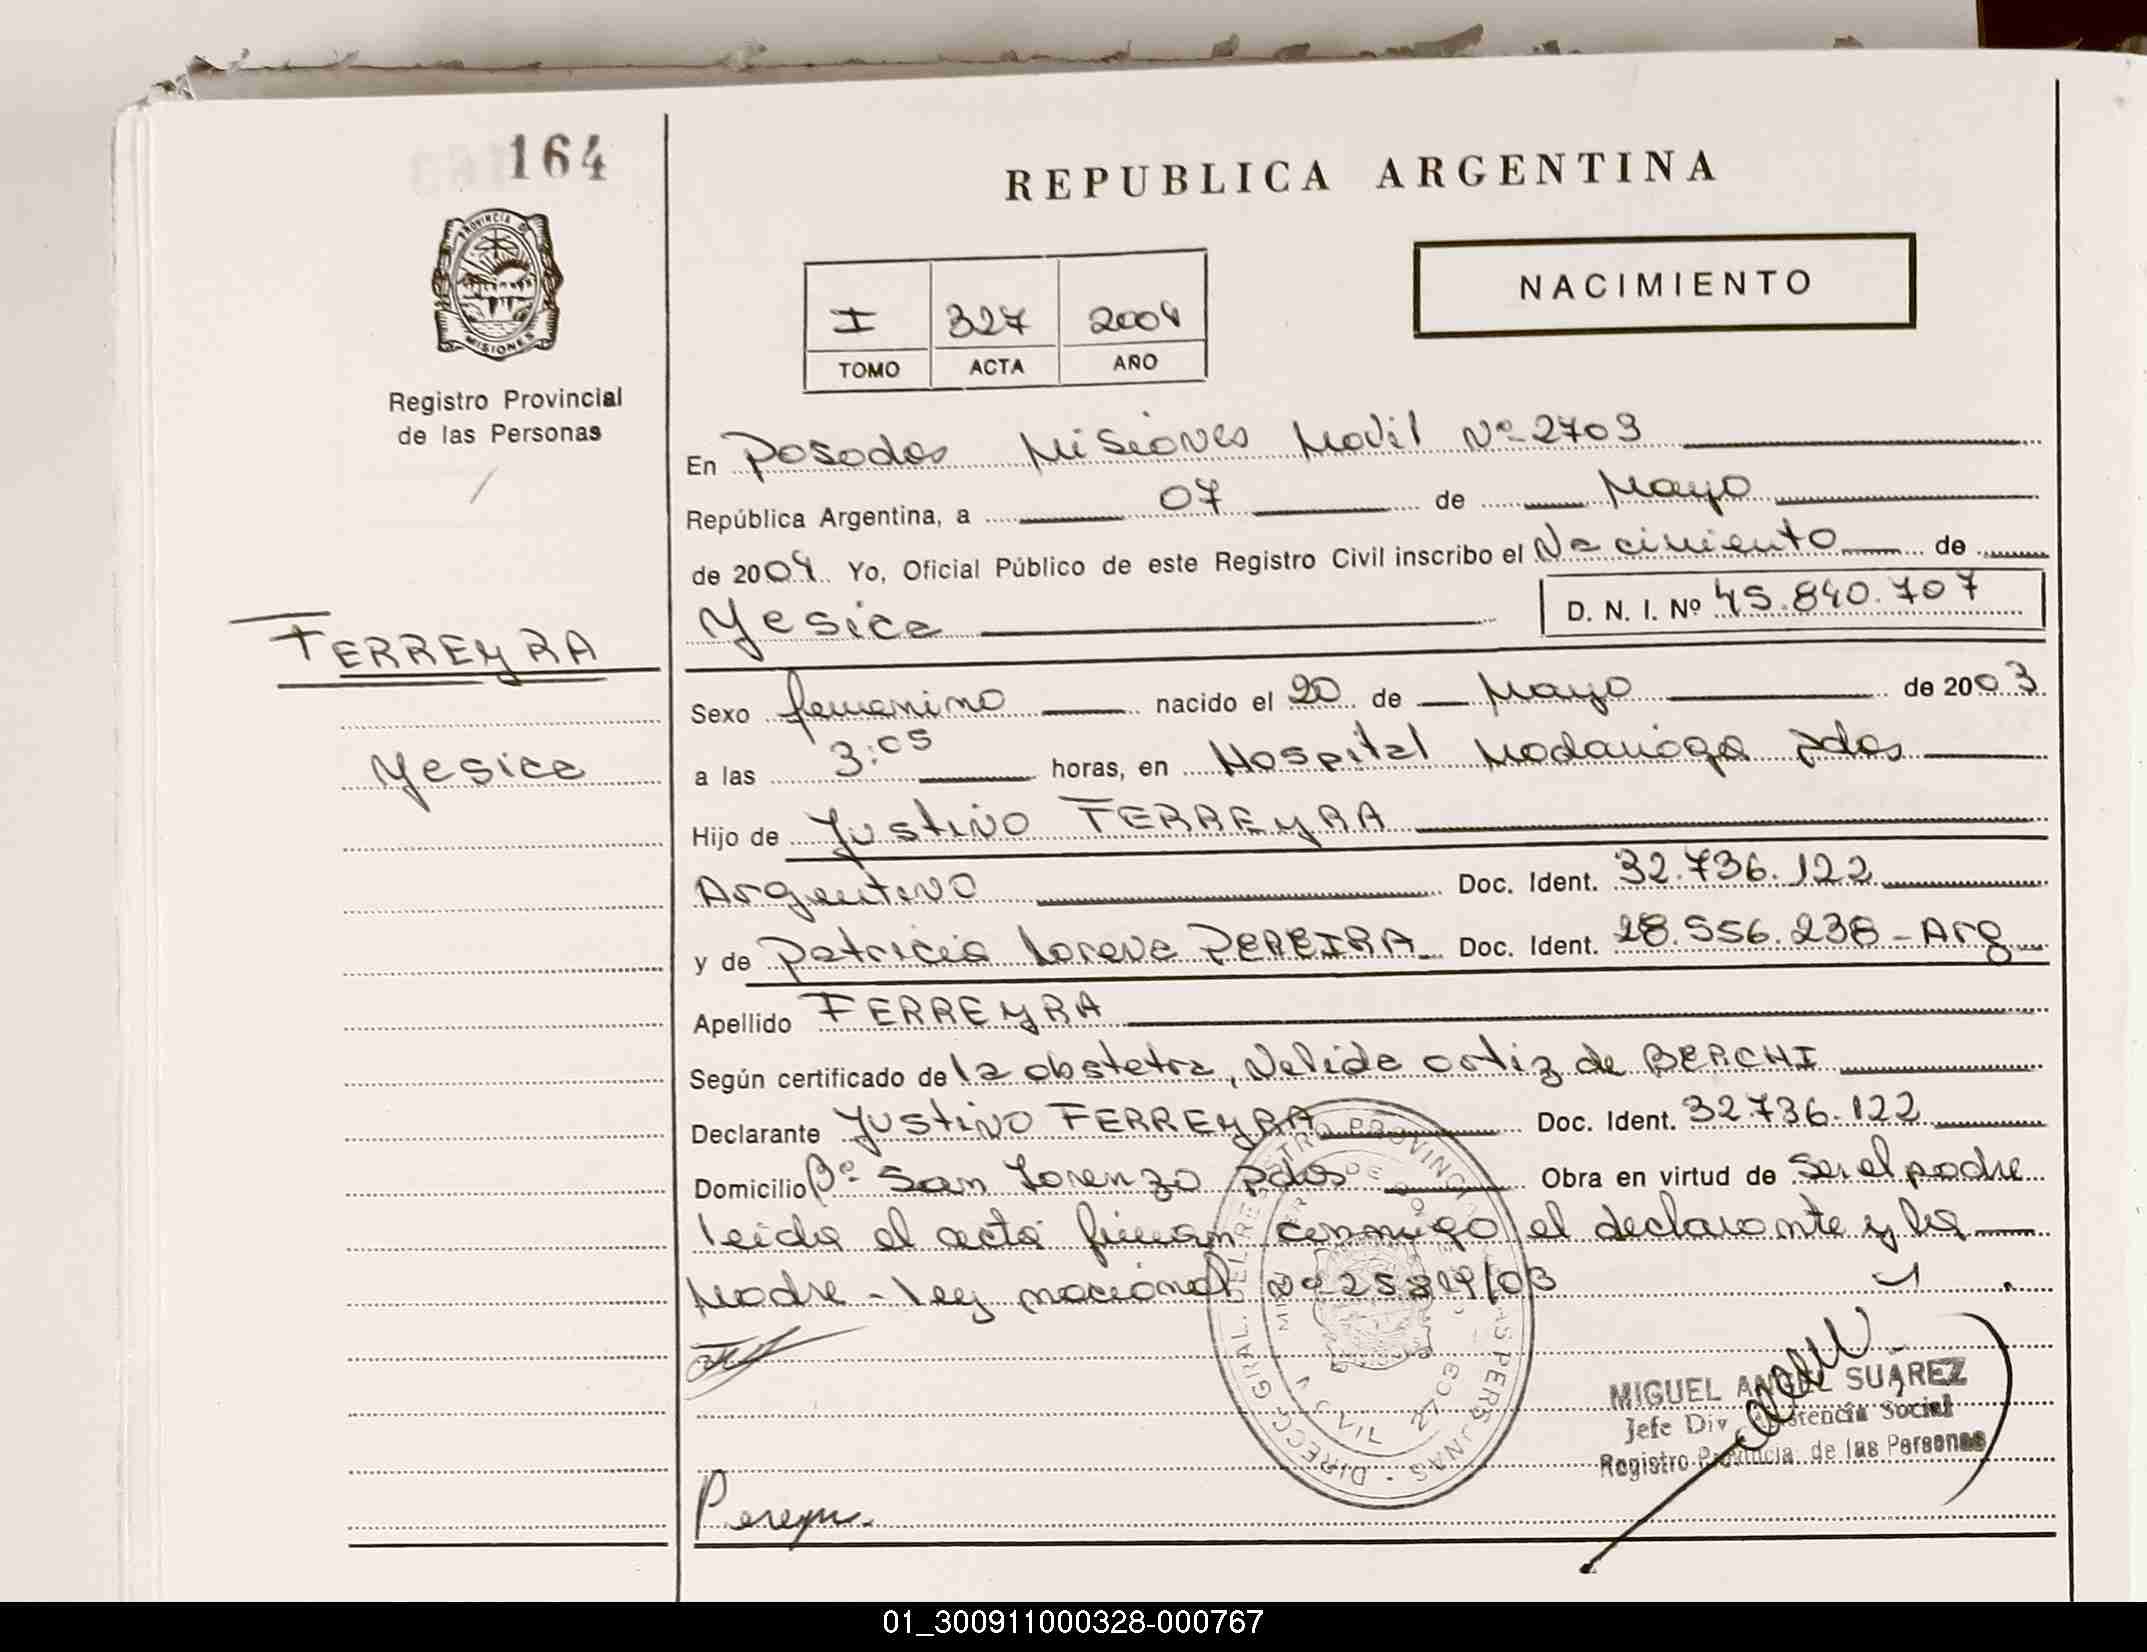 164
PROVINCIA DE
MISIONES
Registro Provincial
de las Personas
FERREYRA
Yesica
REPUBLICA ARGENTINA
NACIMIENTO
I 327 2004
TOMO ACTA AÑO
En Posadas Misiones Movil Nº 2703
República Argentina, a 07 de Mayo
de 2004 Yo, Oficial Público de este Registro Civil inscribo el Nacimiento de
Yesica D. N. I. Nº 45.840.707
Sexo femenino nacido el 20 de Mayo de 2003
a las 3:05 horas, en Hospital Madariaga Pdas
Hijo de Justino FERREYRA
Argentino Doc. Ident. 32.736.122
y de Patricia Lorena PEREIRA Doc. Ident. 28.556.238 - Arg
Apellido FERREYRA
Según certificado de la obstetra, Nelida Ortiz de BERCHI
Declarante Justino FERREYRA Doc. Ident. 32.736.122
Domicilio Bº San Lorenzo Pdas Obra en virtud de ser el padre
leida el acta firman conmigo el declarante y la
Madre - ley nacional Nº 25819/03
DIRECC. GRAL. DEL REGISTRO PROVINCIAL DE LAS PERSONAS
MOVIL 2703
MIGUEL ANGEL SUAREZ
Jefe Div. Asistencia Social
Registro Provincial de las Personas
01_300911000328-000767